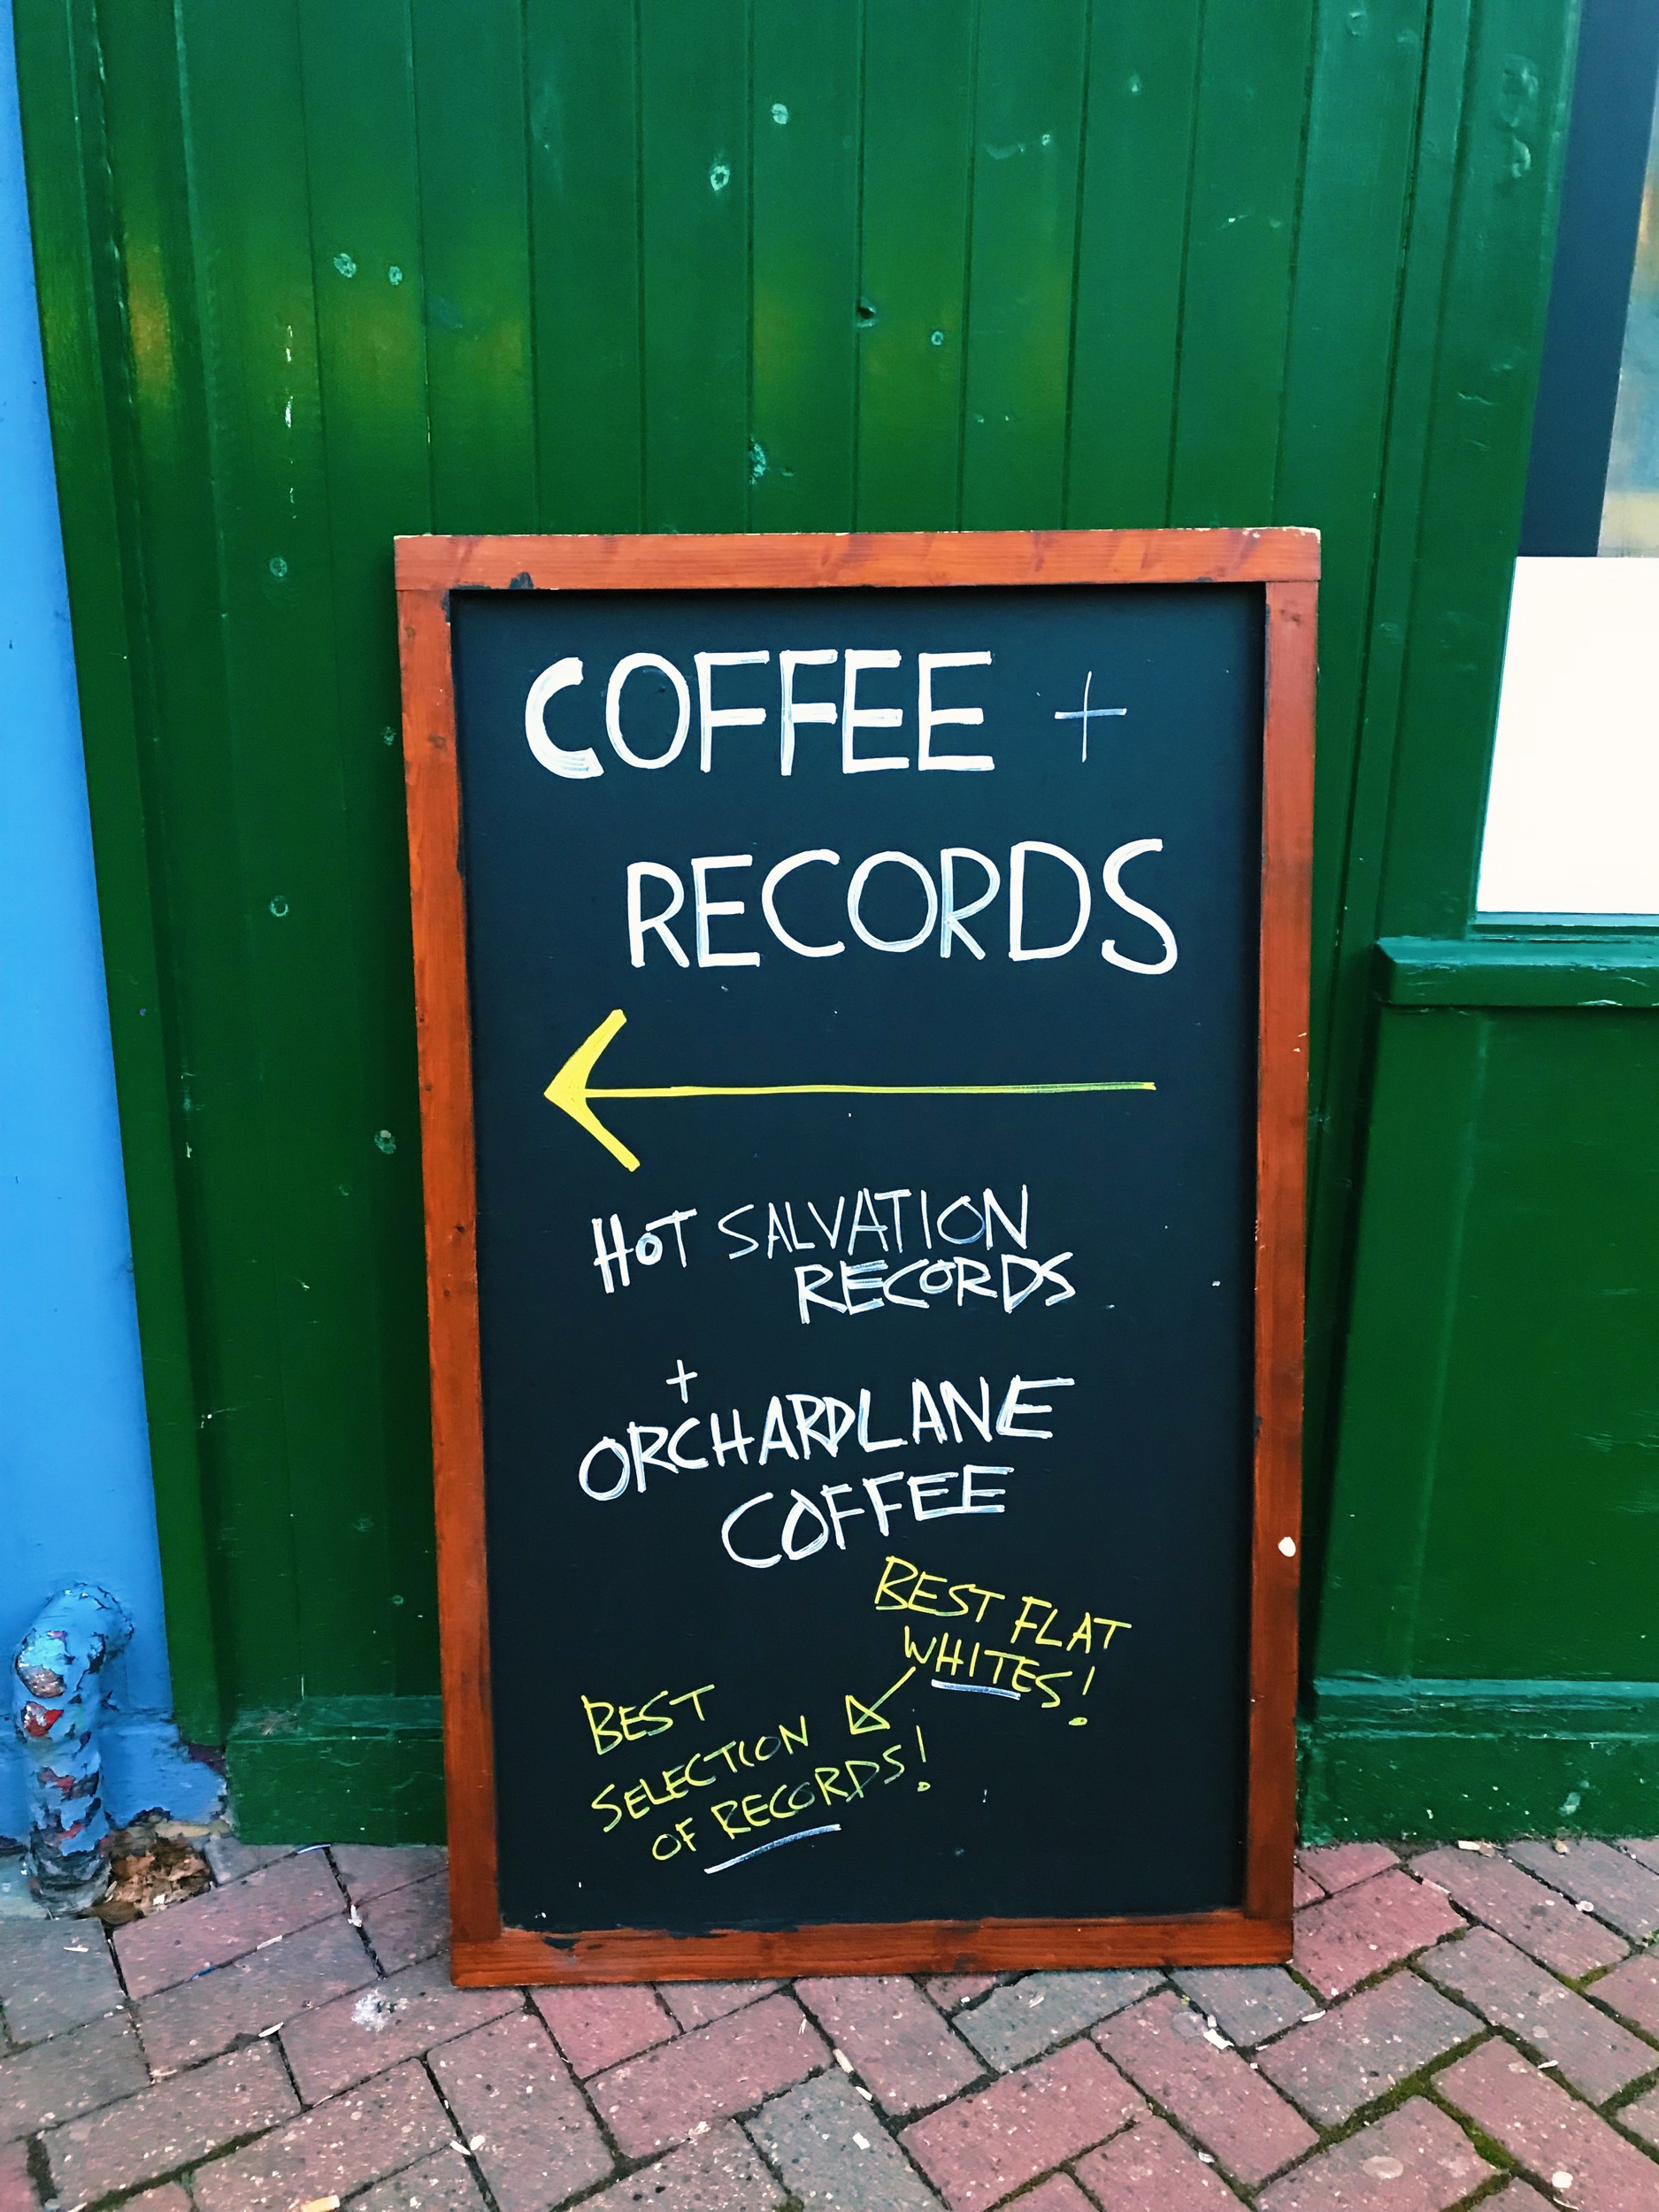 COFFEE +
RECORDS
HOT SALVATION
RECORDS
+
ORCHARDLANE
COFFEE
BEST FLAT
WHITES!
BEST
SELECTION
OF RECORDS!